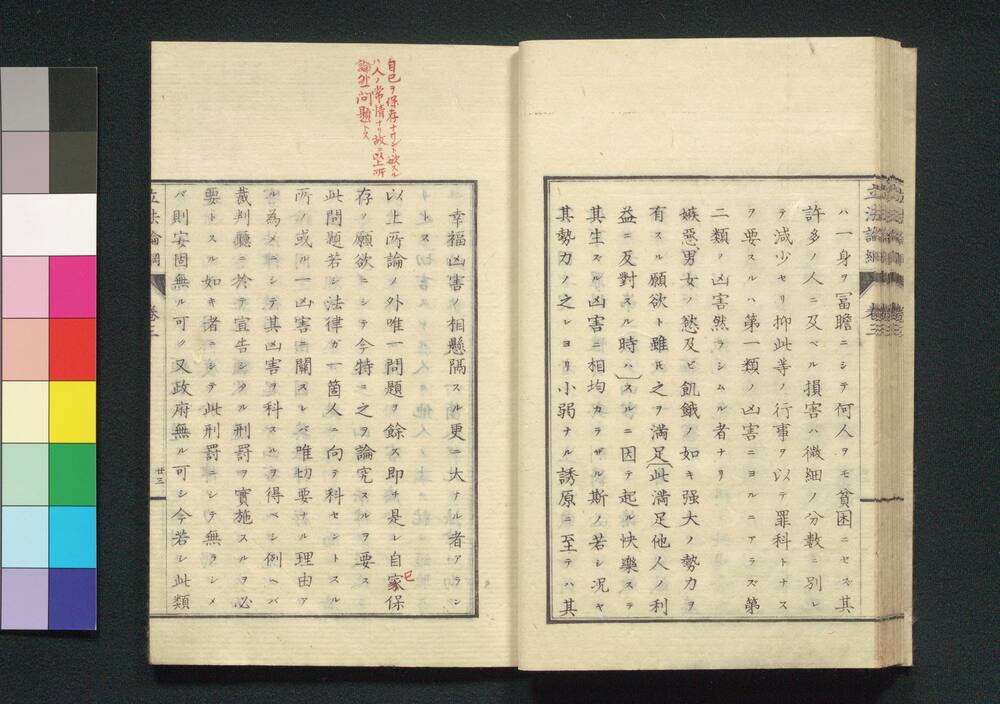 立法論綱 卷三
ハ一身ヲ冨贍ニシテ何人ヲモ貧困ニセズ其
許多ノ人ニ及ベル損害ハ微細ノ分數ニ別レ
テ減少セリ抑此等ノ行事ヲ以テ罪科トナス
ヲ要スルハ第一類ノ凶害ニヨルニアラズ第
二類ノ凶害然ラシムル者ナリ
嫉惡男女ノ慾及ビ飢餓ノ如キ强大ノ勢力ヲ
有スル願欲ト雖𪜈之ヲ満足(此満足他人ノ利
益ニ反對スル時ハ)スルニ因テ起ル快樂スラ
其生ズル凶害ニ相均カラザル斯ノ若シ况ヤ
其勢力ノ之レヨリ小弱ナル誘原ニ至テハ其
幸福凶害ノ相懸隔スル更ニ大ナル者アラン
以上所論ノ外唯一問題ヲ餘ス即チ是レ自家保
己
存ヲ願欲ニシテ今特ニ之ヲ論究スルヲ要ス
此問題若シ法律ガ一箇人ニ向テ科セントスル
所ノ或ル一凶害ニ關スレバ唯切要ナル理由ア
ル為メニシテ其凶害ヲ科スルヲ得ベシ例ヘバ
裁判聽ニ於テ宣告シタル刑罰ヲ實施スルヲ必
要トスル如キ者ニシテ此刑罰ニシテ無ランメ
バ則安固無ル可ク又政府無ル可シ今若シ此類
立法論綱 卷三 廿三
自己ヲ保存ナサント欲スル
ハ人ノ常情ナリ故ニ以上所
論外ノ問題トス